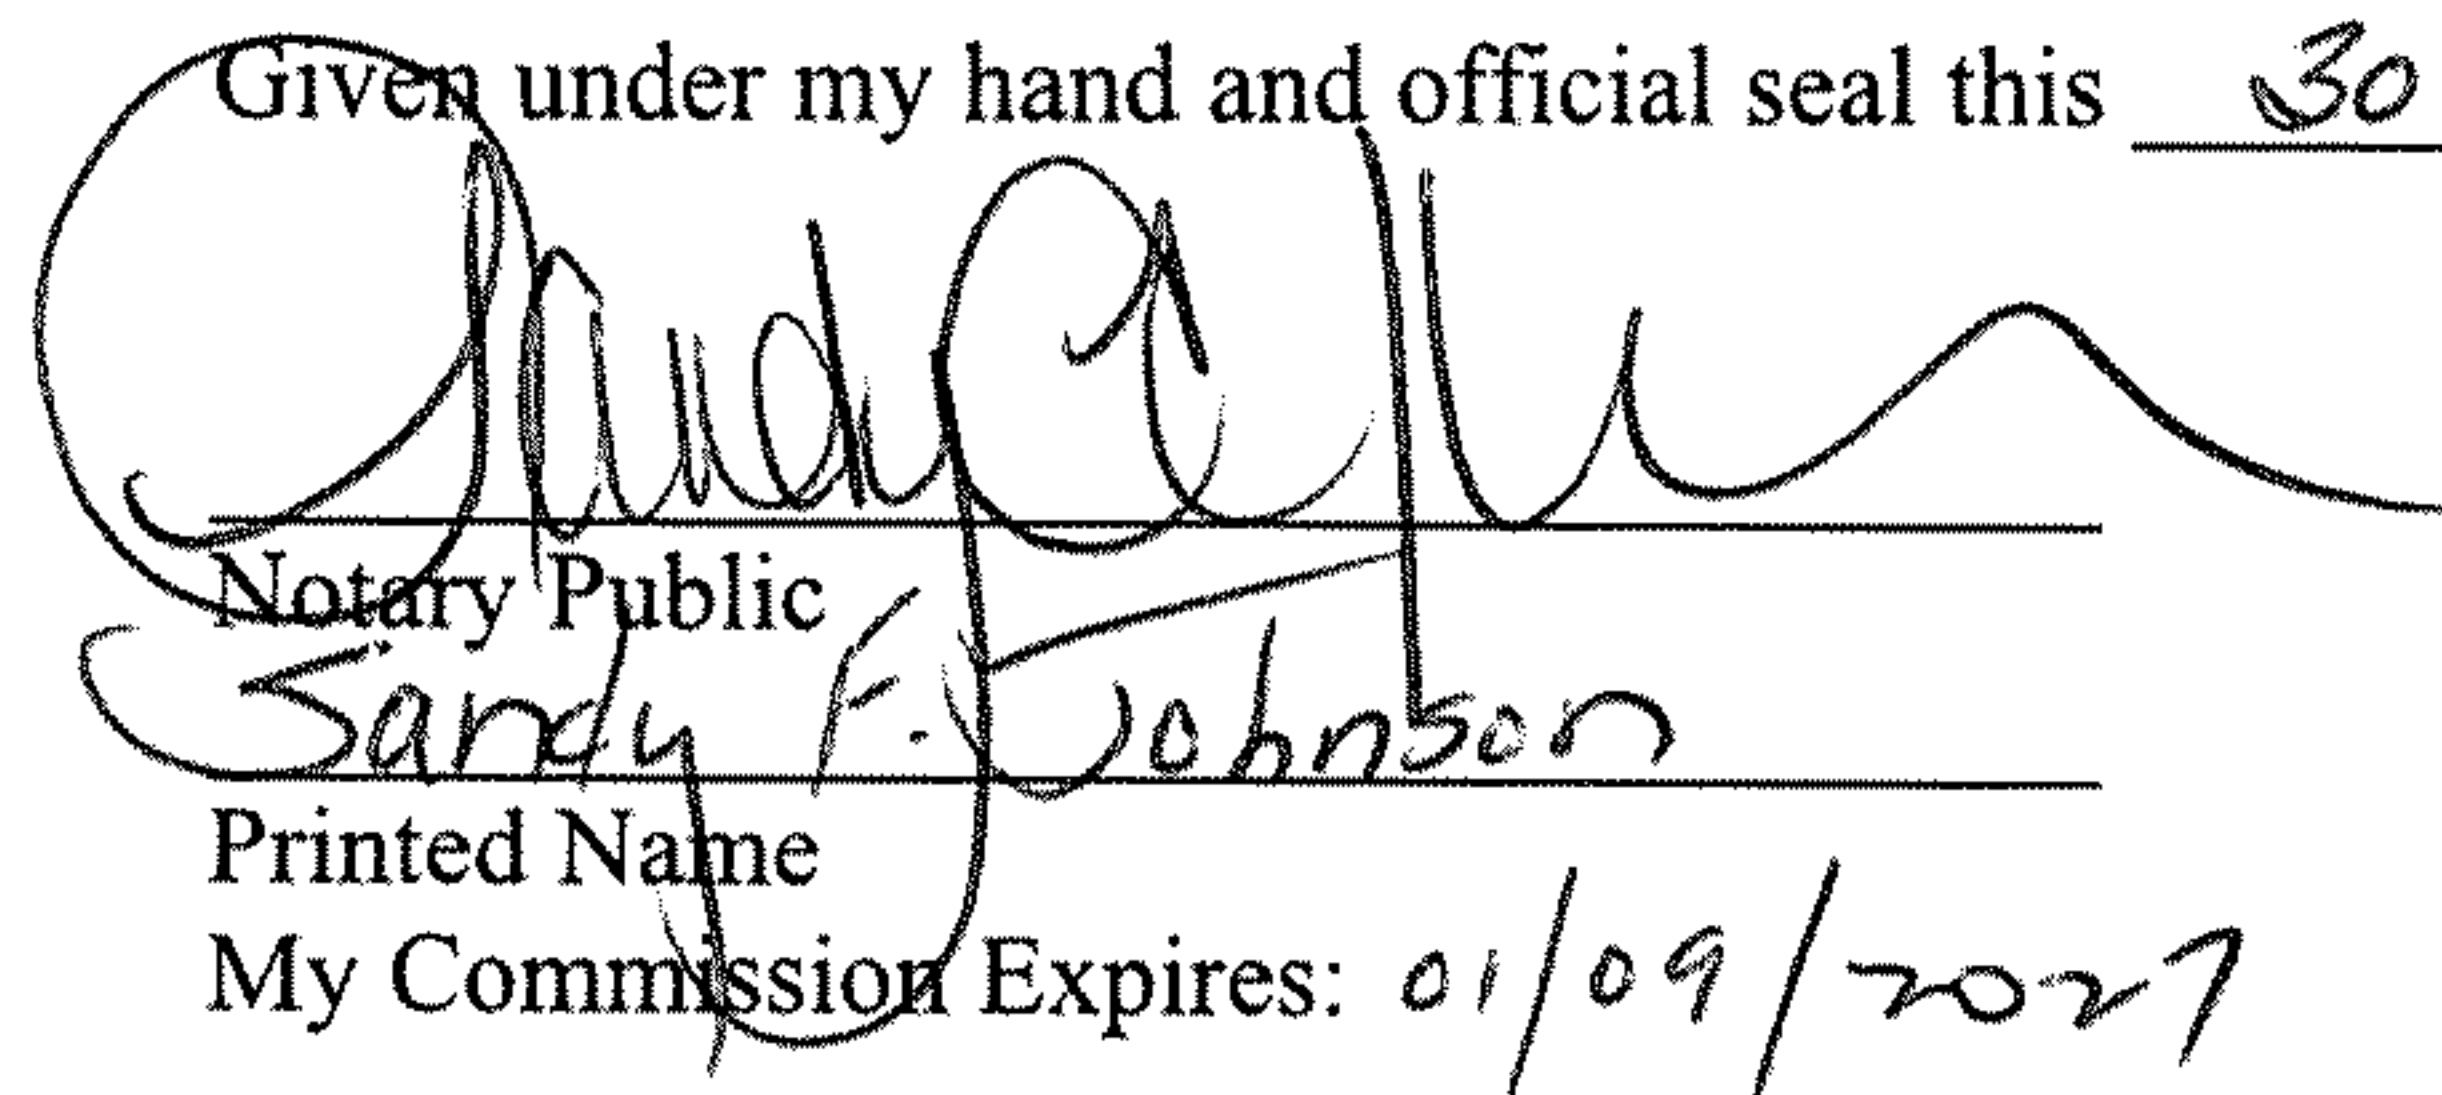 Given under my hand and official seal this 30
Notary Public
Sandy F. Johnson
Printed Name
My Commission Expires: 01/09/2027